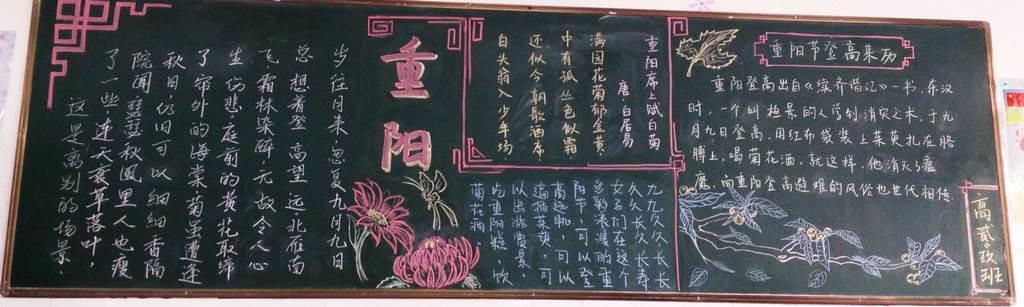 岁往月来，忽复九月九日
总想着登高望远，北雁南
飞，霜林染醉，无故令人心
生伤悲，庭前的黄花取缔
了帘外的海棠，菊虽遭逢
秋日，仍旧可以细细香隔
院闻，瑟瑟秋风里人也瘦
了一些，连天衰草落叶，
这是离别的场景。
重阳
重阳席上赋白菊
唐·白居易
满园花菊郁金黄
中有孤丛色似霜
还似今朝歌酒席
白头翁入少年场
九九久久，长长
久久，长长寿寿
阳节，可以登
高起眺，可以
遍插茱萸，可
以出游赏景
吃重阳糕，饮
菊花酒。
重阳节登高来历
重阳登高出自《续齐谐记》一书，东汉
时，一个叫桓景的人学到消灾之术，于九
月九日登高，用红布袋装上茱萸扎在胳
膊上，喝菊花酒，就这样，他消灭了瘟
魔，而重阳登高避难的风俗也世代相传
高贰·玖班